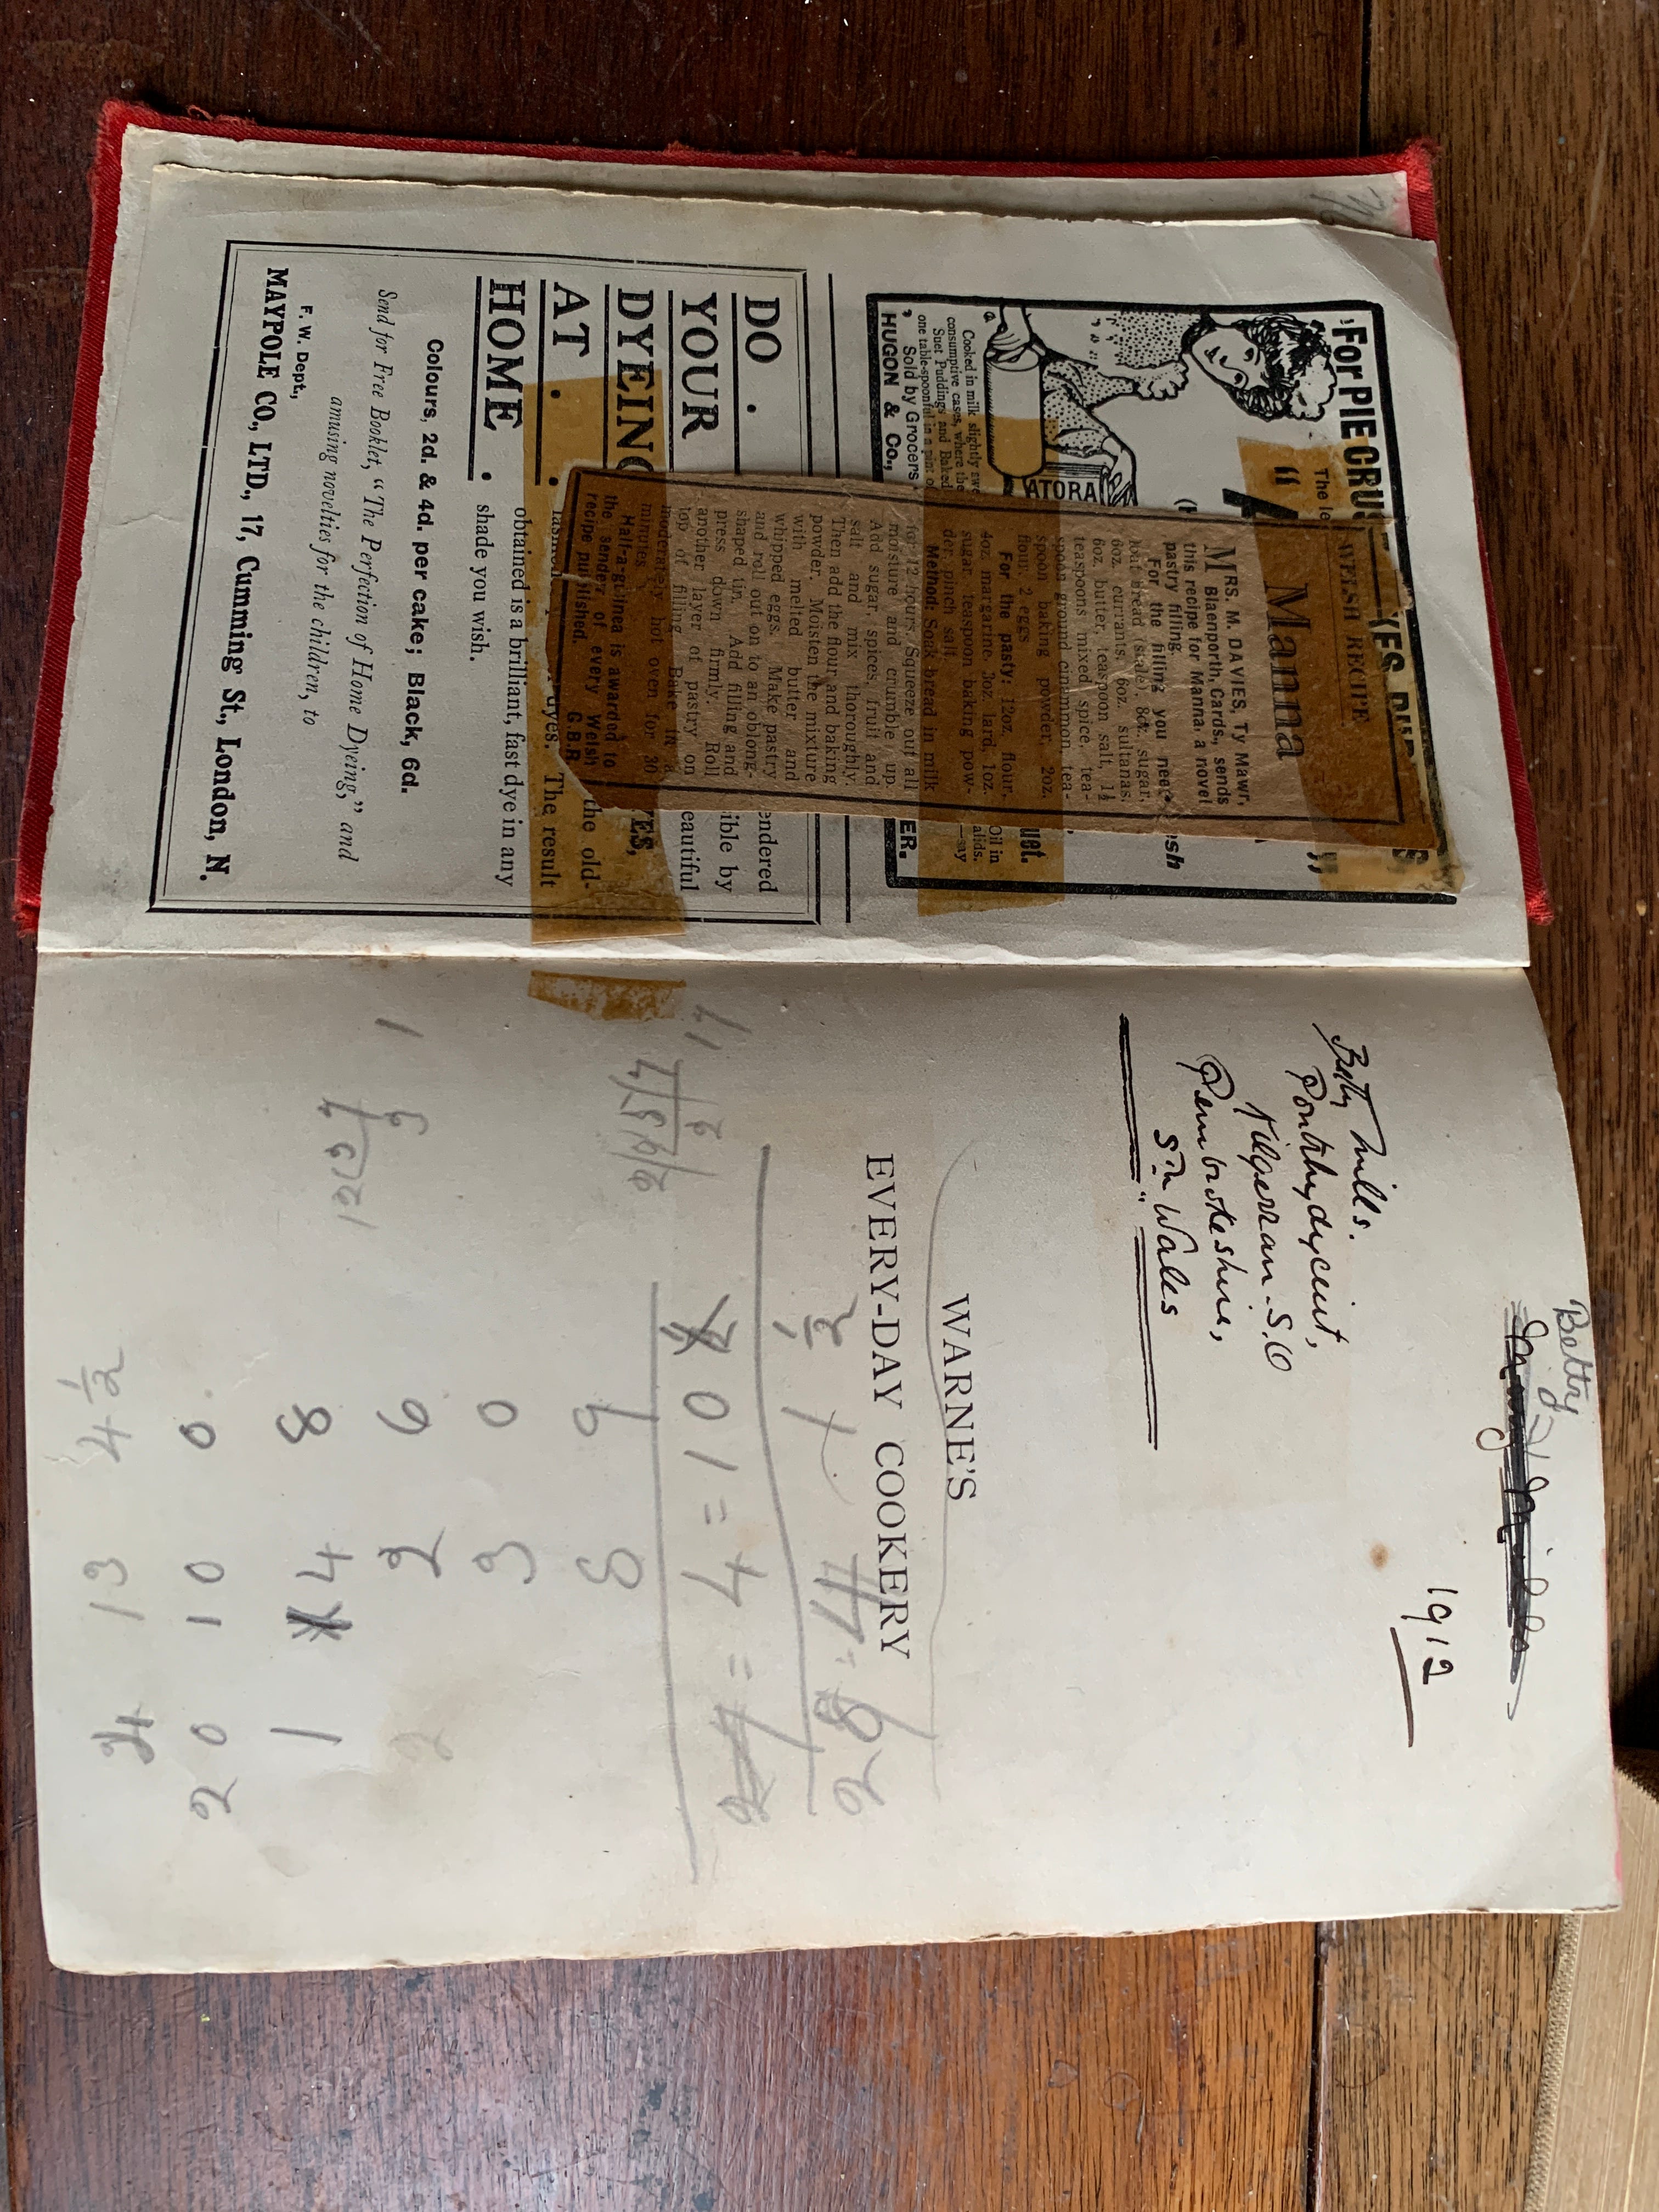 "For PIE CRUST
The le
"A
ATORA
Cooked in milk slightly swe
consumptive cases, where the
Suet Puddings and Baked
one table-spoonful in a pint o
Sold by Grocers
HUGON & Co.,
esh
uet.
Oil in
alids.
ER.
WELSH RECIPE
Manna
MRS. M. DAVIES, Ty Mawr,
Blaenporth, Cards., sends
this recipe for Manna, a novel
pastry filling.
For the filling you need
loaf bread (stale), 8oz. sugar,
6oz. currants, 6oz. sultanas,
6oz. butter, teaspoon salt, 1½
teaspoons mixed spice, tea-
spoon ground cinnamon, tea-
spoon baking powder, 2oz.
flour, 2 eggs
For the pasty: 12oz. flour,
4oz. margarine, 3oz. lard, 1oz.
sugar, teaspoon baking pow-
der, pinch salt.
Method: Soak bread in milk
for 12 hours. Squeeze out all
moisture and crumble up.
Add sugar, spices, fruit and
salt and mix thoroughly.
Then add the flour and baking
powder. Moisten the mixture
with melted butter and
whipped eggs. Make pastry
and roll out on to an oblong-
shaped tin. Add filling and
press down firmly. Roll
another layer of pastry on
top of filling. Bake in a
moderately hot oven for 30
minutes.
Half-a-guinea is awarded to
the sender of every Welsh
recipe published. G.B.R.
DO .
YOUR
DYEING
AT . .
HOME .
endered
ible by
eautiful
the old-
dyes. The result
obtained is a brilliant, fast dye in any
shade you wish.
Colours, 2d. & 4d. per cake; Black, 6d.
Send for Free Booklet, "The Perfection of Home Dyeing," and
amusing novelties for the children, to
F. W. Dept.,
MAYPOLE CO., LTD., 17, Cumming St., London, N.
Betty
1912
Betty Mills.
Pontrhydyceirt,
Kilgerran. S.O
Pembrokeshire,
Sth Wales
WARNE'S
EVERY-DAY COOKERY
½
0 1 = 7 =
9 8
0 3
6 2
8 4 1
0 10 20
4½ 13